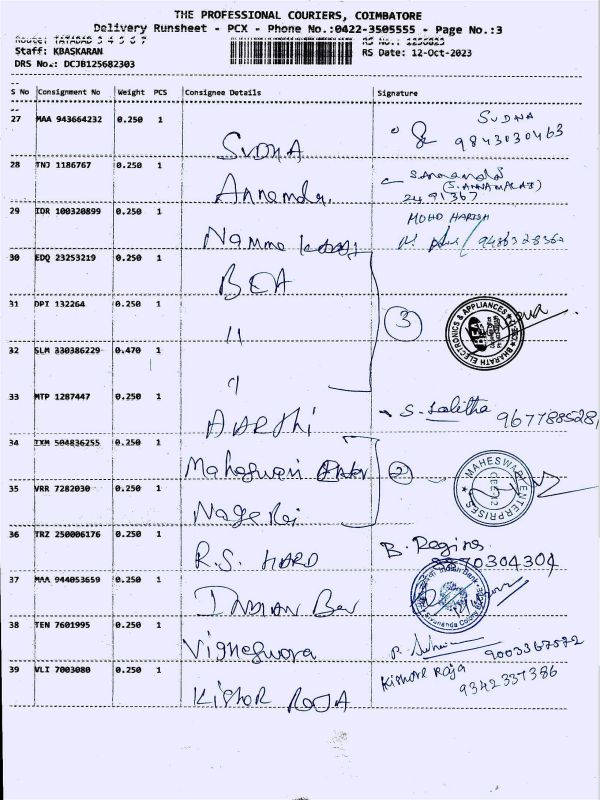 THE PROFESSIONAL COURIERS, COIMBATORE
Delivery Runsheet - PCX - Phone No.:0422-3505555 - Page No.:3
Staff: KBASKARAN
RS Date: 12-Oct-2023
DRS No.: DCJB125682303
S No Consignment No Weight PCS Consignee Details Signature
27 MAA 943664232 0.250 1 SUDHA SUDHA 9843030463
28 TNJ 1186767 0.250 1 (S. ANNAMALAI) 2491367
29 IDR 100320899 0.250 1 Namma MOHD HARISH
30 EDQ 23253219 0.250 1 BEA
31 DPI 132264 0.250 1 11 3 BHARATH ELECTRONICS & APPLIANCES BEA
32 SLM 330386229 0.470 1 "
33 MTP 1287447 0.250 1 AARTHI S. Lalitha 9677885281
34 IXM 504836255 0.250 1 Maheswari 2 MAHESWARI ENTERPRISES
35 VRR 7282030 0.250 1
36 TRZ 250006176 0.250 1 R.S. HARD B. Regina 70304304
37 MAA 944053659 0.250 1 Indian Bank Sivananda Colony
38 TEN 7601995 0.250 1 Vigneswara 9003367572
39 VLI 7003080 0.250 1 KISHOR ROJA Kishore Raja 9342337386